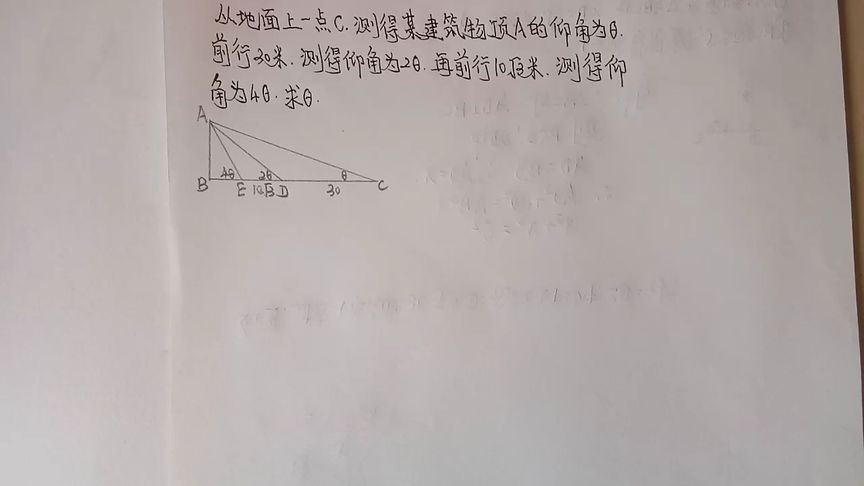 从地面上一点C.测得某建筑物顶A的仰角为θ.
前行30米.测得仰角为2θ.再前行10√3米.测得仰
角为4θ.求θ.
A
4θ 2θ θ
B E 10√3 D 30 C